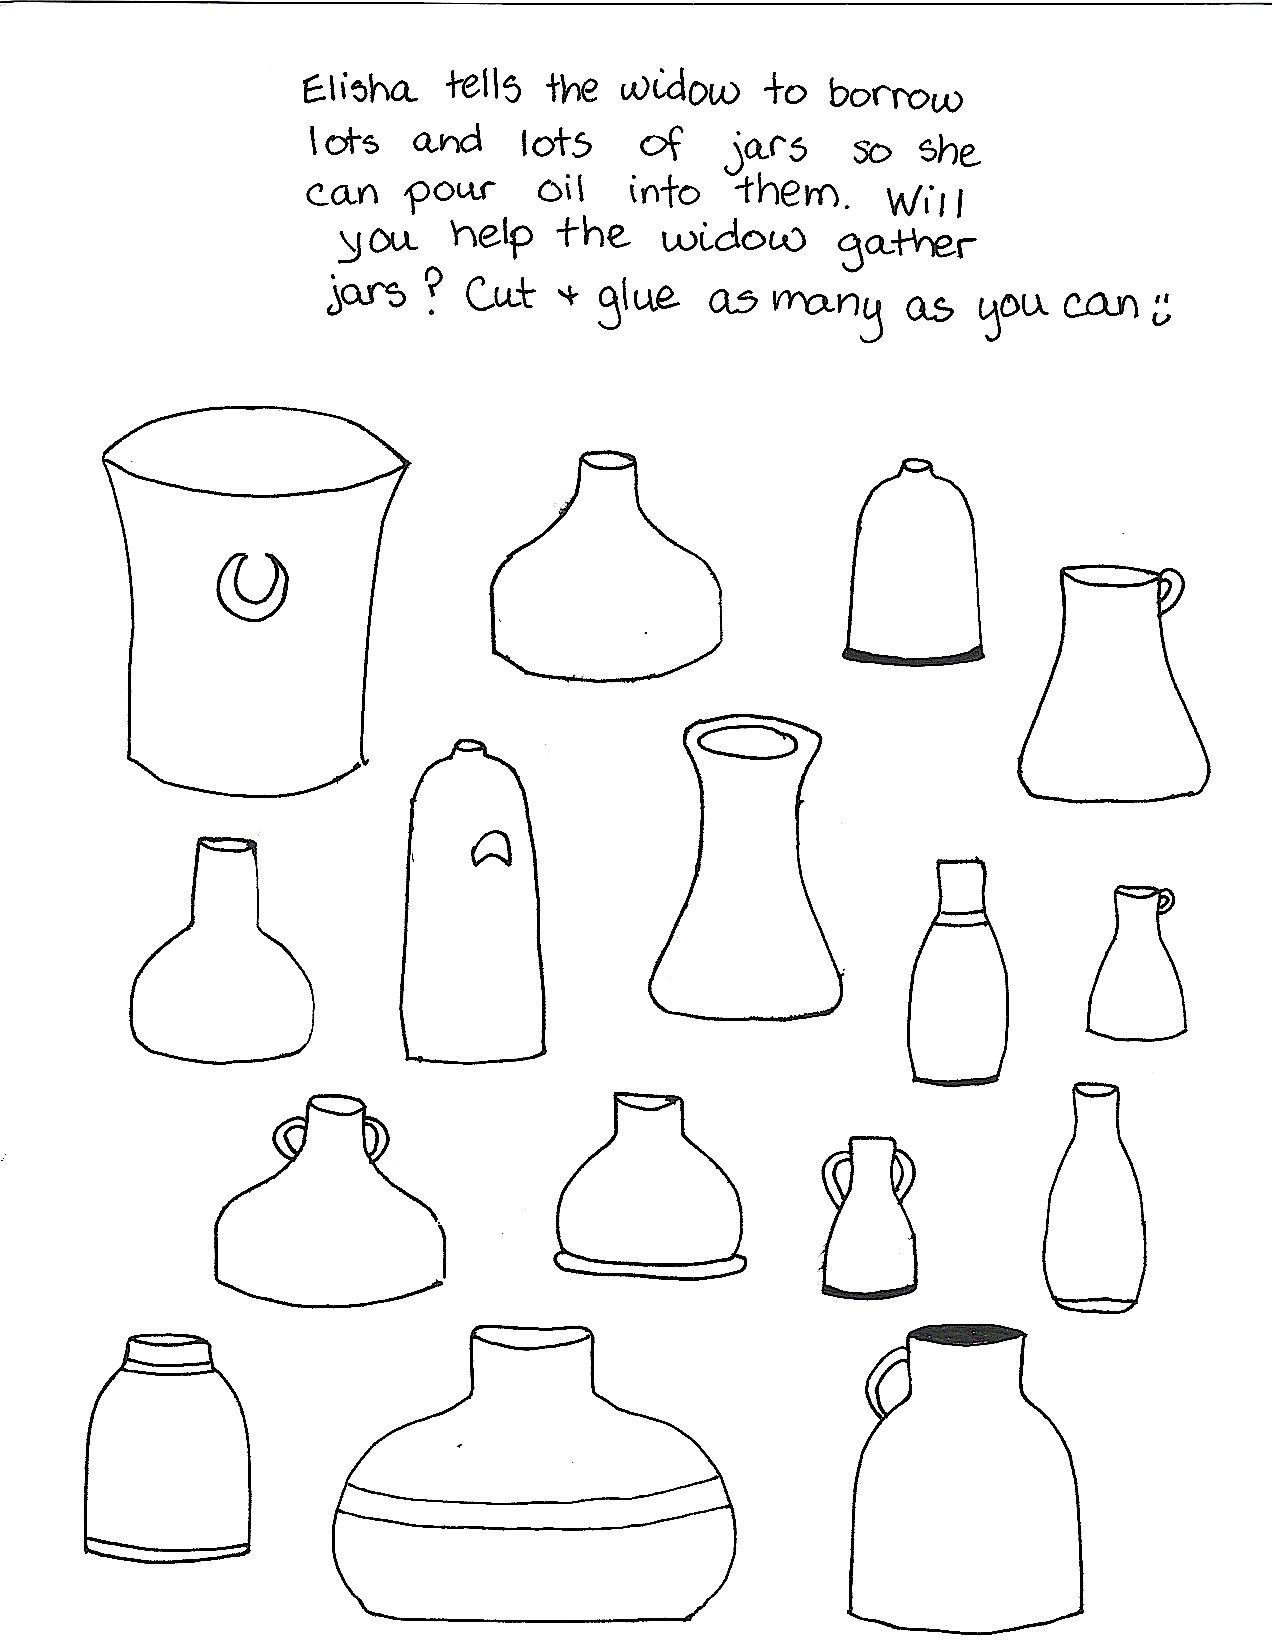 Elisha tells the widow to borrow
lots and lots of jars so she
can pour oil into them. Will
you help the widow gather
jars? Cut + glue as many as you can :)